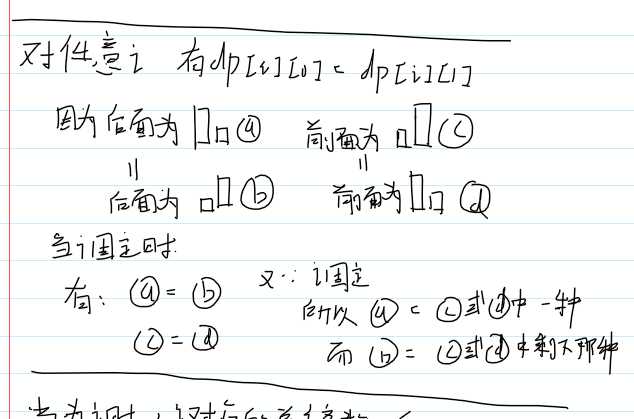 对任意i 有dp[i][0] = dp[i][1]
因为 后面为 ⓐ 前面为 ⓒ
=
=
后面为 ⓑ 前面为 ⓓ
当i固定时
有: ⓐ = ⓑ 又∵ i固定
ⓒ = ⓓ 所以 ⓐ = ⓒ或ⓓ中一种
而 ⓑ = ⓒ或ⓓ中剩下那种